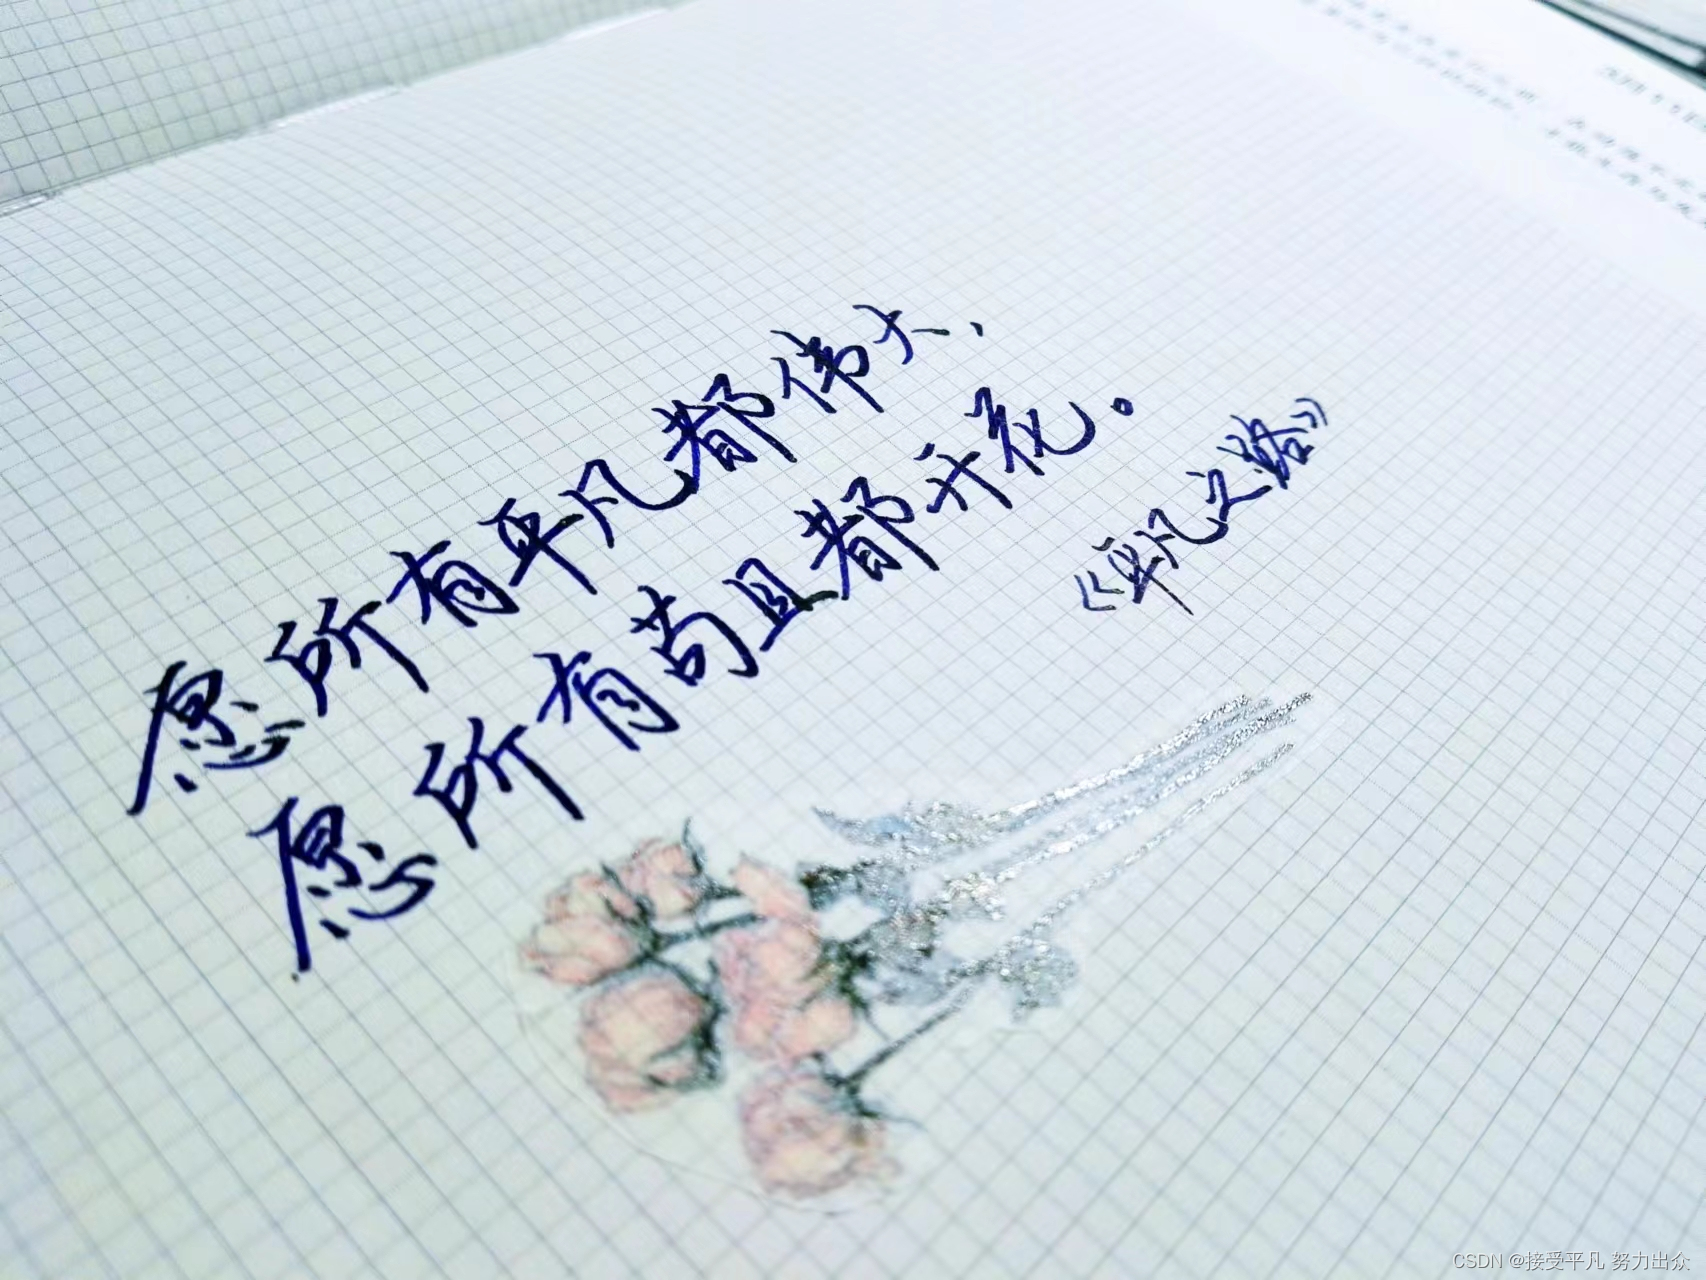 愿所有平凡都伟大,
愿所有苟且都开花。
《平凡之路》
CSDN @接受平凡 努力出众